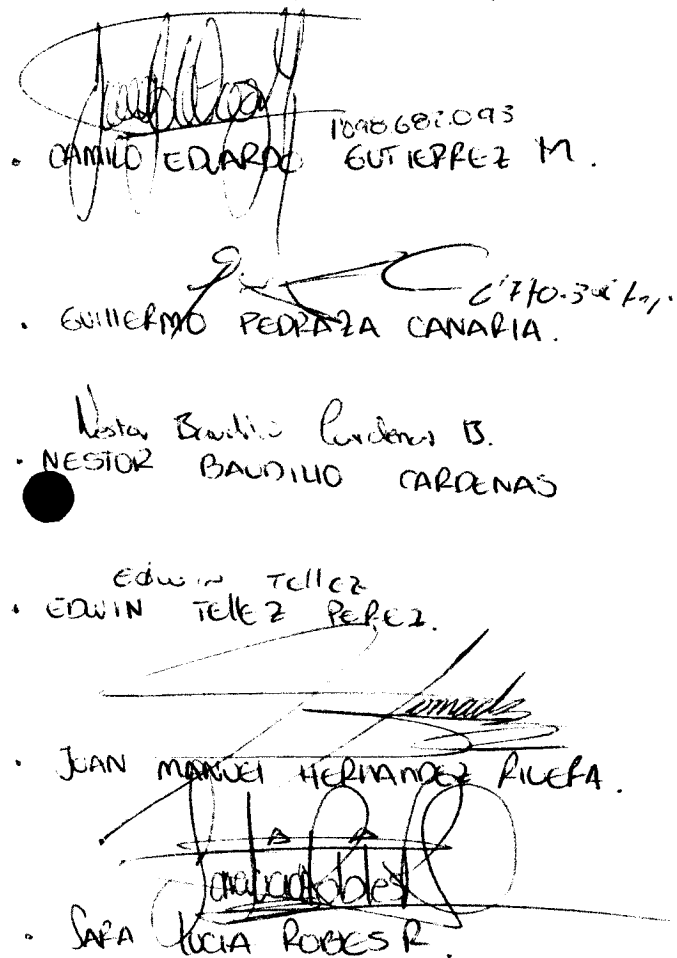 1098.682.093
. CAMILO EDUARDO GUTIERREZ M.
. GUILLERMO PEDRAZA CANARIA.
Nestor Baudilio Cardenas B.
. NESTOR BAUDILIO CARDENAS
Edwin Tellez
. EDWIN TELLEZ PEREZ.
. JUAN MANUEL HERNANDEZ RIVERA.
. SARA LUCIA ROBLES R.